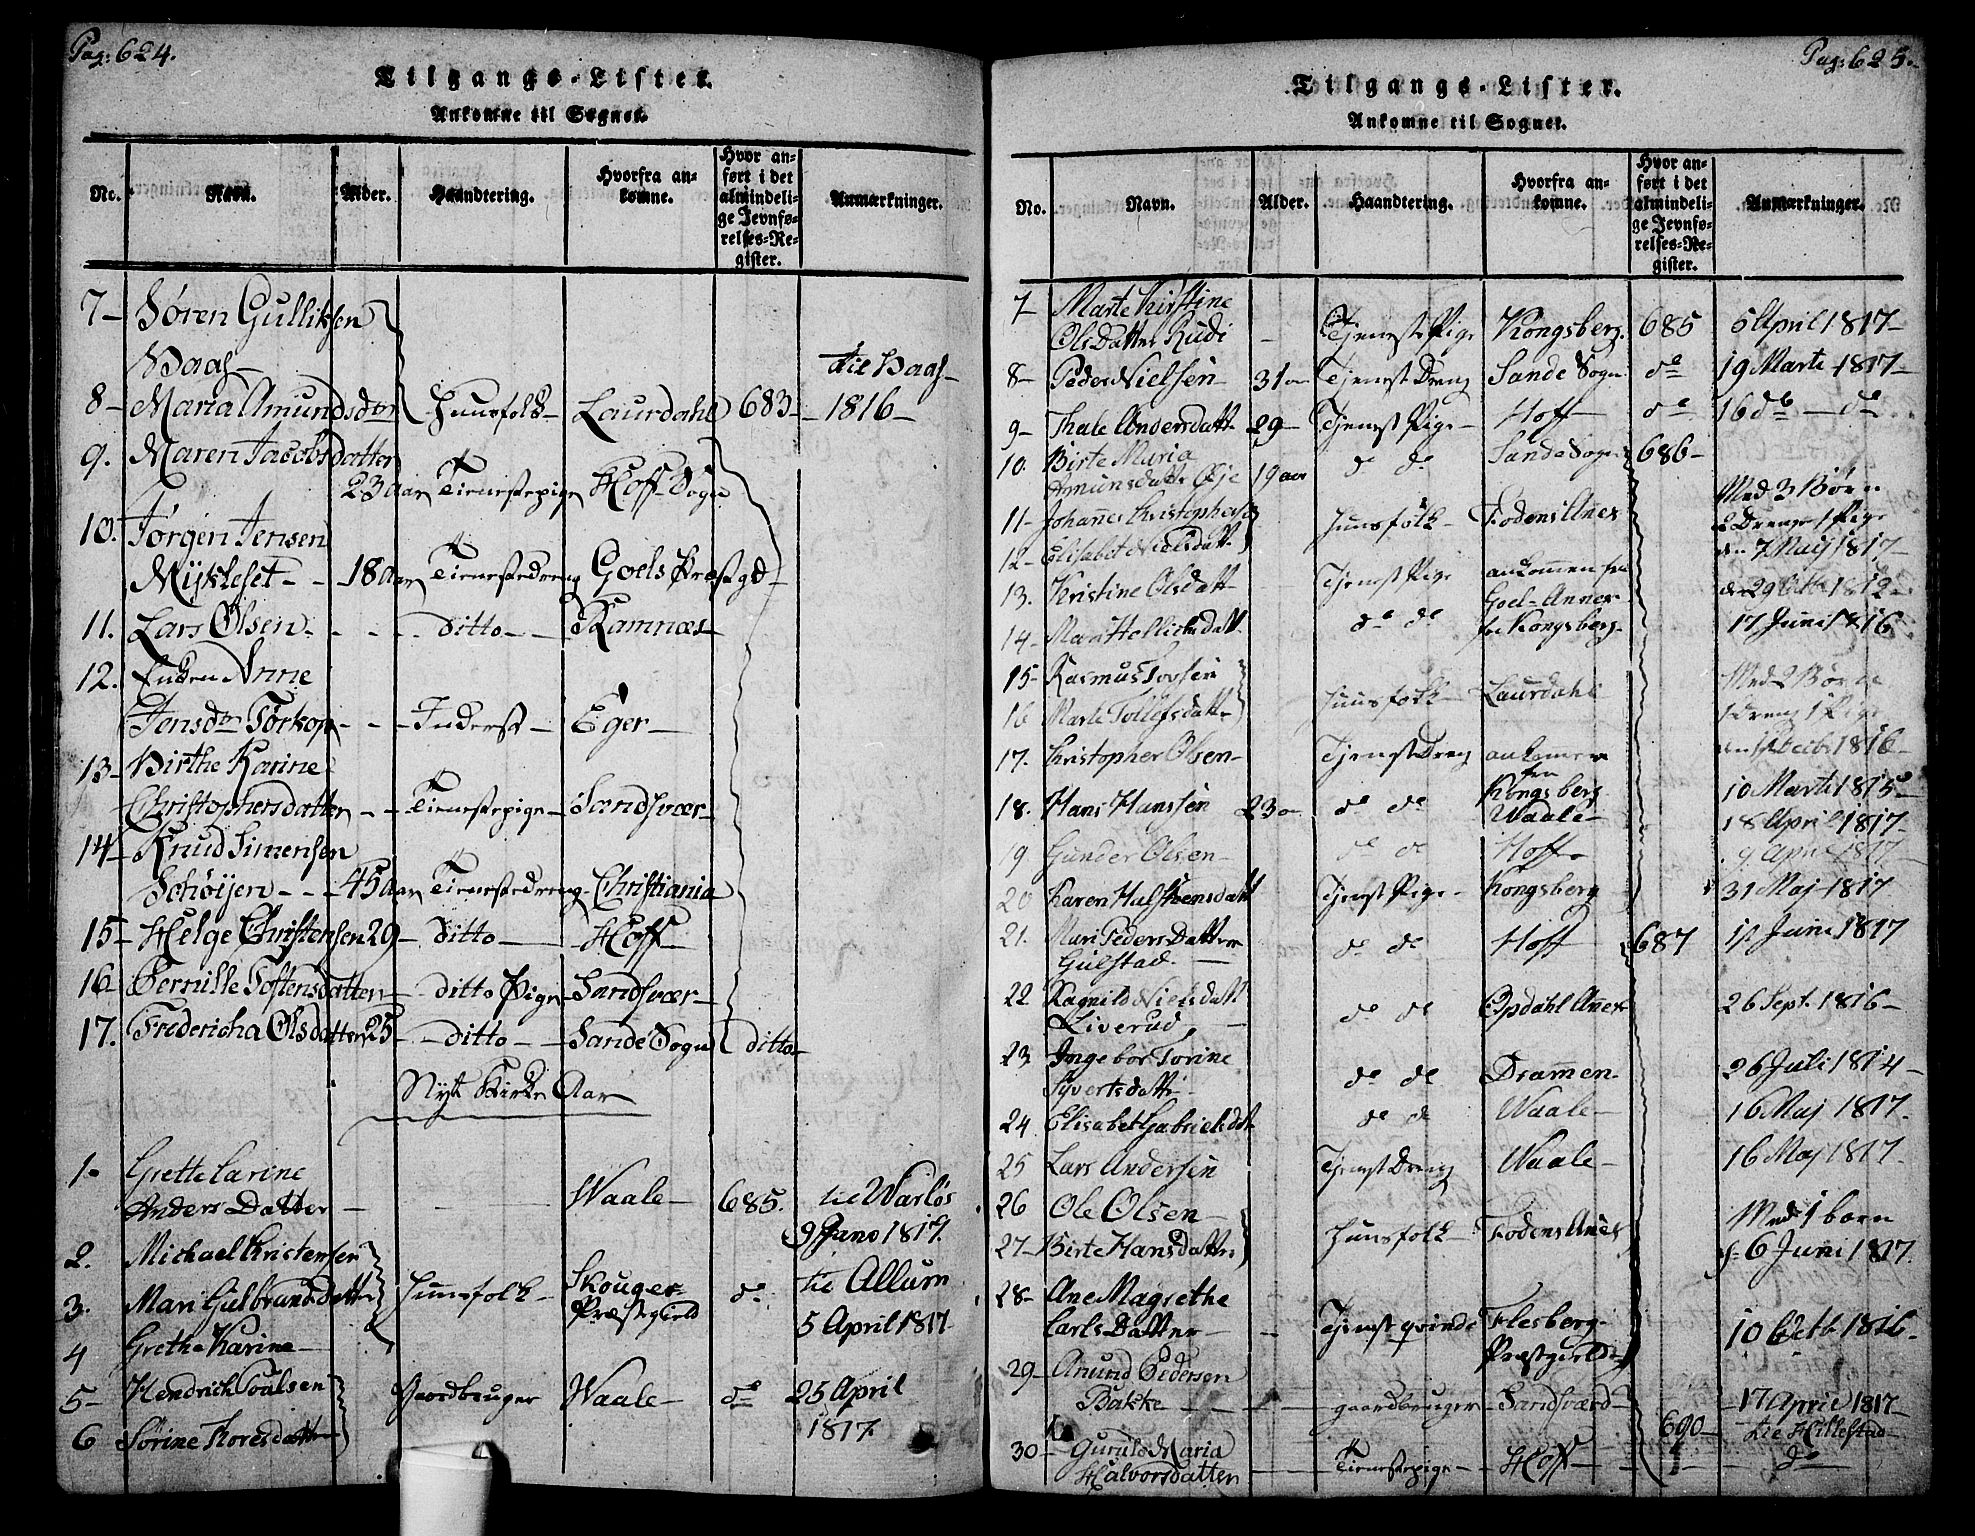 Pag: 624.
Tilgangs-Lister.
Ankomne til Sognet.
No.
Navn.
Alder.
Haandtering.
Hvorfra an-
komne.
Hvor an-
ført i det
almindeli-
ge Jevnfø-
relses-Re-
gister.
Anmærkninger.
7- Søren Gulliksen
Haas- til Haas-
8- Maria Amundsdtr Huusfolk- Laurdahl 683- 1816-
9. Maren Jacobsdatter
23 Aar Tienestepige Hoff Sogn
10. Jørgen Jensen
Mykleset - - 18 Aar Tienestedreng Goels Præstgd-
11. Lars Olsen - - - ditto - Ramnæs
12. Enken Anne
Jensdtr Torkop - - - Inderst - Eger -
13- Birthe Karine
Christophersdatter - - Tienestepige - Sandsvær-
14- Knud Simensen
Schøijen - - - 45 Aar Tienestedreng Christiania
15- Helge Christensen 29- ditto - Hoff
16- Pernille Tostensdatter - ditto Pige Sandsvær-
17. Fredericha Olsdatter 25 - ditto - Sande Sogn ditto
Nyt Kirke Aar
1- Grette Carine
Anders Datter - Waale- 685. til Warløs
9 Jano 1817.
2. Michael Kristensen
3. Mari Gulbrandsdatter Huusfolk- Skouger Præstegield do til Allum
5 April 1817
4 Grethe Karine-
5- Hendrich Poulsen Gaardbruger Waale- do 25 April
6 Sørine Thoresdatter 1817.
Pag: 625.
Tilgangs-Lister.
Ankomne til Sognet.
No.
Navn.
Alder.
Haandtering.
Hvorfra an-
komne.
Hvor an-
ført i det
almindeli-
ge Jevnfø-
relses-Re-
gister.
Anmærkninger.
7- Marte Kirstine
OlsDatter Rudi - Tjeneste Pige Kongsberg. 685 5 April 1817-
8- Peder Nielsen 31- Tjenest Dreng Sande Sogn do 19 Marti 1817-
9- Thale Andersdatt 29- Tjenest Pige- Hoff do 16 do - do
10. Birte Maria do do Sande Sogn 686-
Amunsdatt Øje 19 aar
11- Johannes Christophersen Huusfolk- Fodens Anex Med 3 Børn
2 Drenge 1 Pige
12- Elisabet Nielsdatt den 7 Maij 1817-
13. Kristine Olsdatt Tjenest Pige ankommen fra
Goel-Annex den 29 Octb 1812-
14- Mari Hellichsdatt do do fra Kongsberg- 17 Juni 1816
15- Rasmus Tovsen Huusfolk- Laurdahl Med 2 Børn
16 Marte Tollefsdatter 1 Dreng 1 Pige
17. Christopher Olsen- Tjenest Dreng ankommen
fra
Kongsberg 10 Marti 1815-
18. Hans Hansen 23- do do Waale- 18 April 1817-
19 Gunder Olsen- do do Hoff- 9 April 1817-
20 Karen Halstensdatt Tjenest Pige- Kongsberg 31 Maj 1817
21. Mari Peders Datter do do Hoff 687 Juni 1817
Gulstad. -
22 Ragnild Nielsdatt do do Opdahl Anex 26 Sept. 1816-
Liverud, -
23 Ingebor Torine do do Dramen- 26 Juli 1814-
Syvertsdatte
24 Elisabet Gabrielsdat do do Waale- 16 Maj 1817.
25 Lars Andersen Tjenest Dreng Waale- 16 Maj 1817-
26 Ole Olsen- Huusfolk- Fodens Anex Med 1 barn
27- Birte Hansdatter 6 Juni 1817.
28- Ane Magrethe
CarlsDatter - Tjenest qvinde Flesberg-
Præstgield 10 Octb. 1816-
29- Amund Pedersen
Bakke - - - gaardbruger- Sandsværd- 17 April 1817-
690- til Hillestad
30- Gurule Maria
Halvorsdatter - Tienestepige- Hoff - do